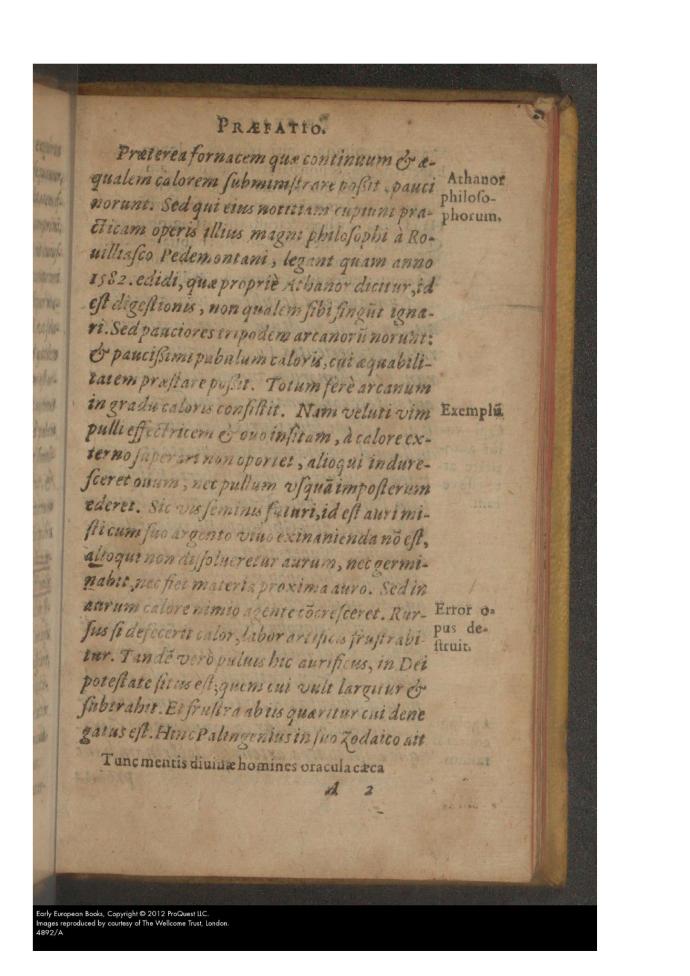 PRÆFATIO.
Præterea fornacem quæ continuum & æ-
qualem calorem subministrare possit, pauci
norunt. Sed qui eius notitiam cupiunt pra-
cticam operis illius magni philosophi à Ro-
uillasco Pedemontani, legant quam anno
1582. edidi, quæ propriè Athanor dicitur, id
est digestionis, non qualem sibi fingũt igna-
ri. Sed pauciores tripodem arcanorũ norunt:
& paucissimi pabulum caloris, cui æquabili-
tatem præstare possit. Totum ferè arcanum
in gradu caloris consistit. Nam veluti vim
pulli effectricem & ouo insitam, à calore ex-
terno superari non oportet, alioqui indure-
sceret ouum, nec pullum vsquã imposterum
ederet. Sic vis seminis futuri, id est auri mi-
sti cum suo argento viuo exinanienda nõ est,
alioqui non dissolueretur aurum, nec germi-
nabit, nec fiet materia proxima auro. Sed in
aurum calore nimio agente cõcresceret. Rur-
sus si defecerit calor, labor artificis frustrabi-
tur. Tandẽ verò puluis hic aurificus, in Dei
potestate situs est, quem cui vult largitur &
subtrahit. Et frustra ab iis quæritur cui dene
gatus est. Hinc Palingenius in suo Zodaico ait
Tunc mentis diuinæ homines oracula cæca
A 2
Athanor
philoso-
phorum.
Exemplũ.
Error o-
pus de-
struit.
Early European Books, Copyright © 2012 ProQuest LLC.
Images reproduced by courtesy of The Wellcome Trust, London.
4892/A